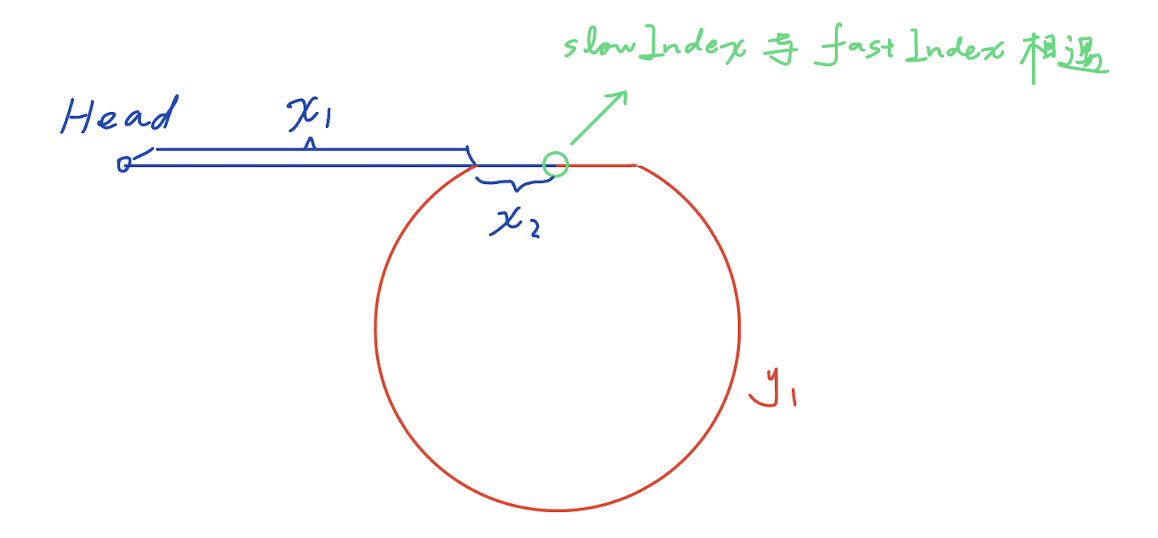 slowIndex 与 fastIndex 相遇
Head
x₁
x₂
y₁